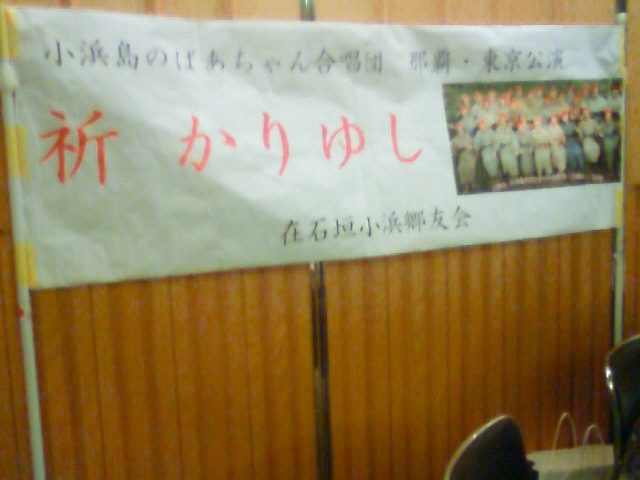 小浜島のばあちゃん合唱団 那覇・東京公演
祈 かりゆし
在石垣小浜郷友会